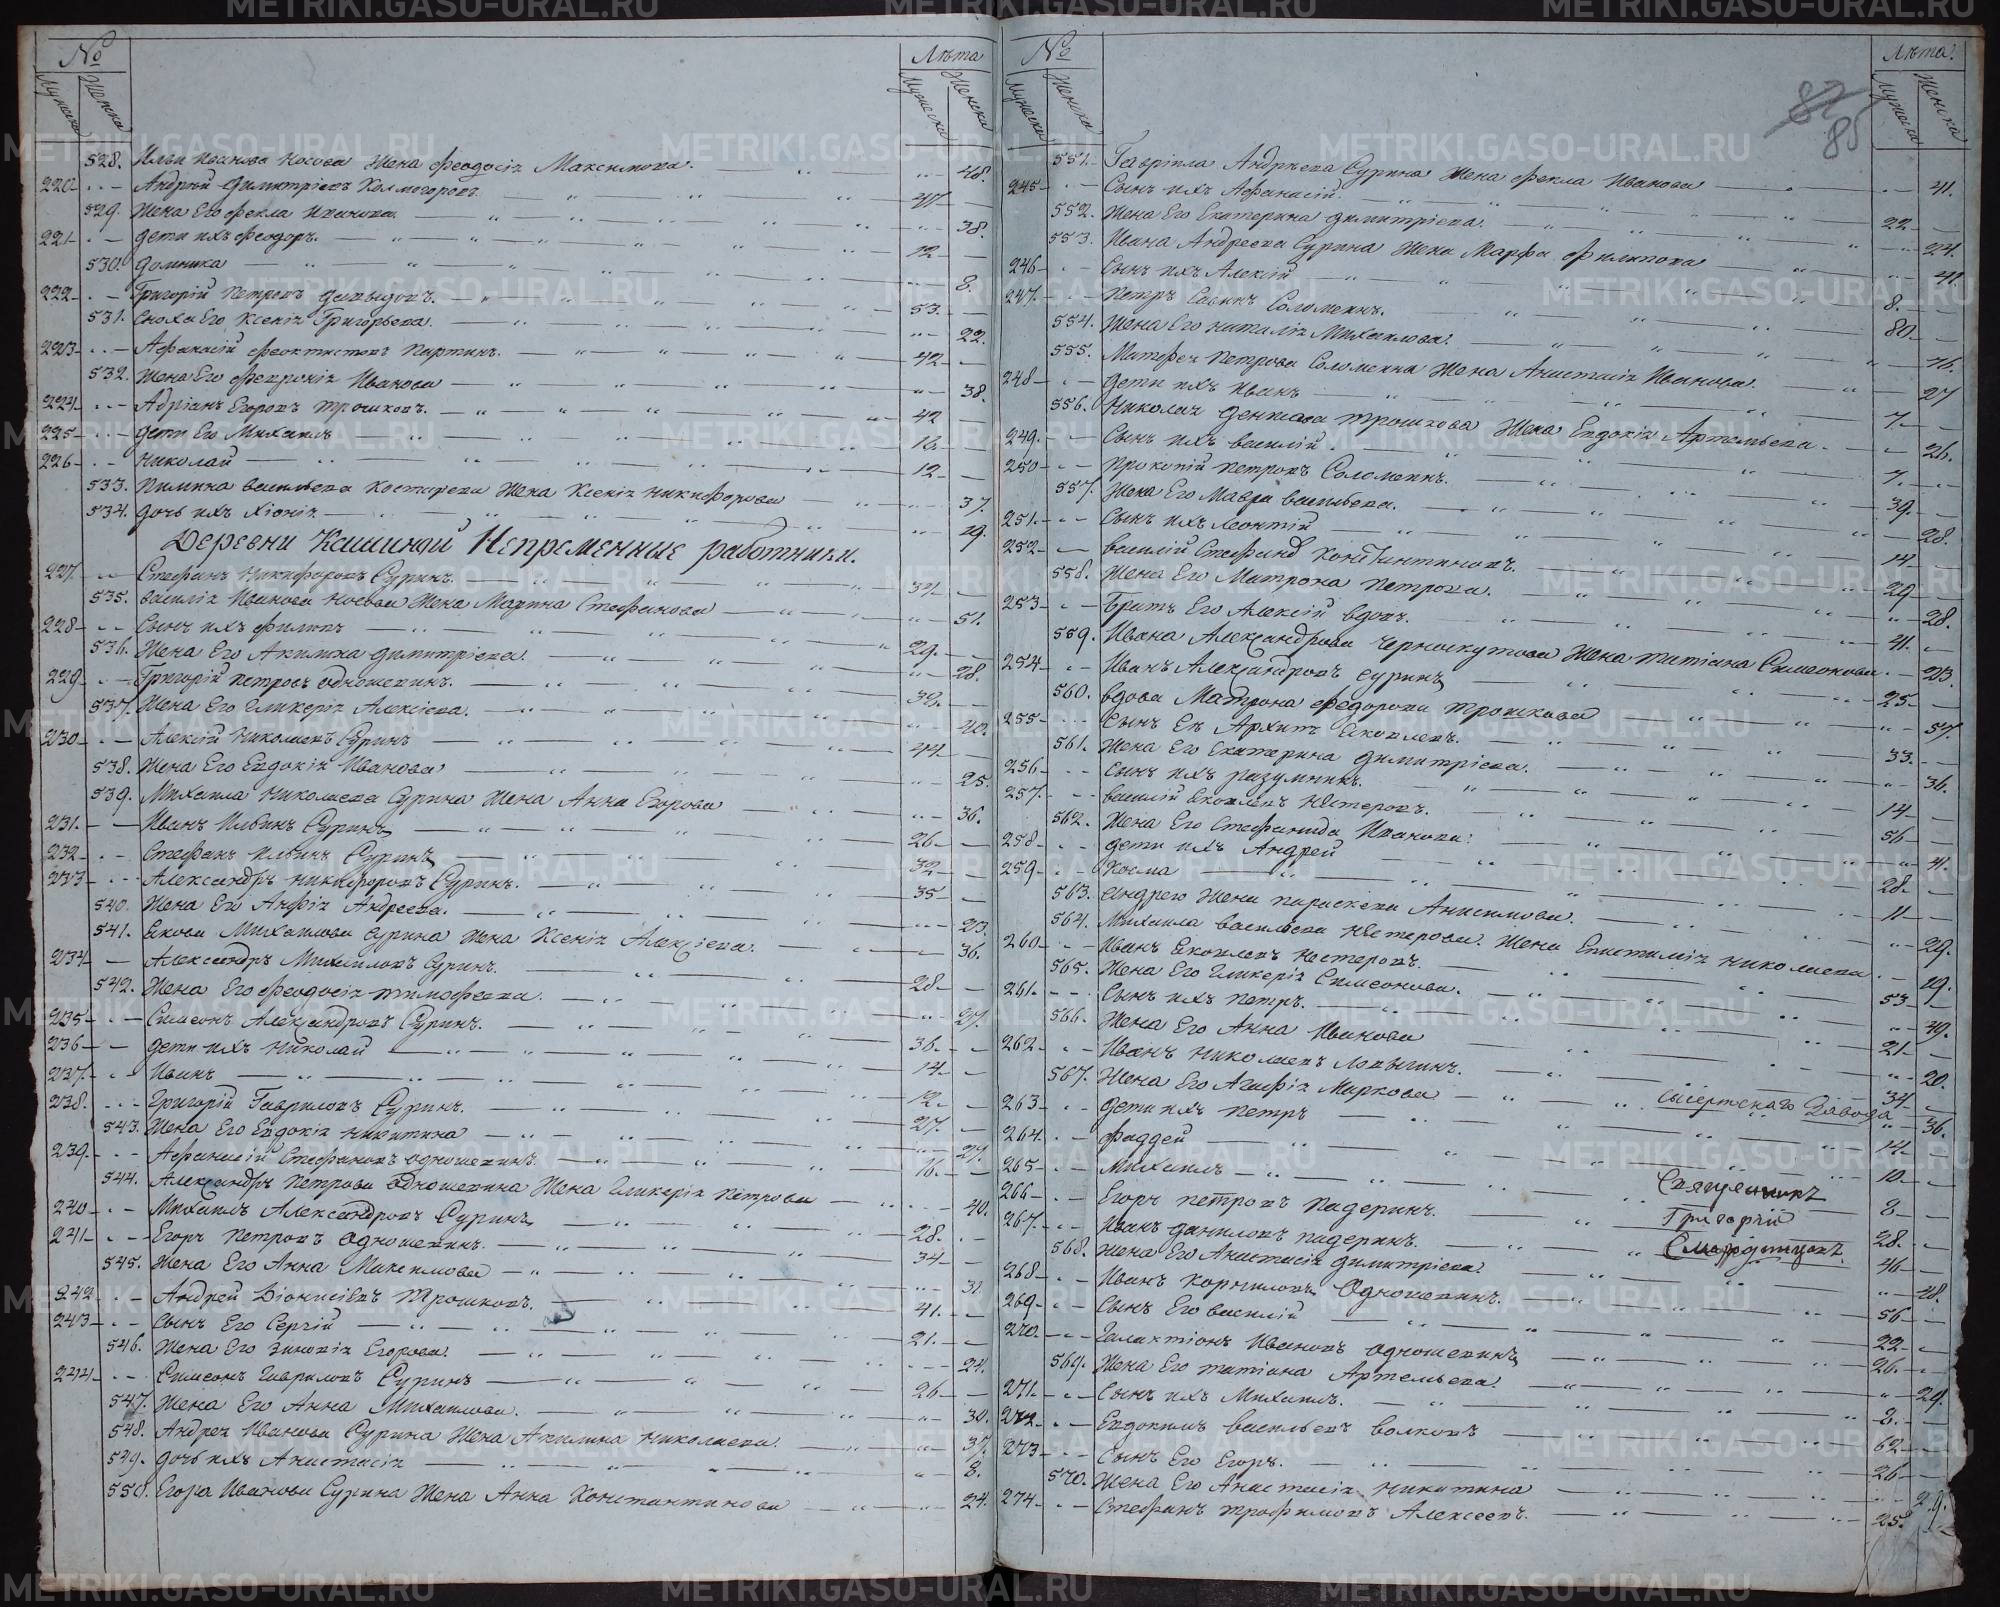 №
Мужеска Женска
Лѣта
Мужеска Женска
528. Ильи Иванова Носова Жена Феодосія Максимова. 48.
220 Андрей Димитріевъ Колмогоровъ.
529. Жена Его Фекла Иванова. 38.
221 дети ихъ Феодоръ. 12
530. Домника 8.
222 Григорій Петровъ Давыдовъ. 53.
531. Сноха Его Ксенія Григорьева. 22.
223 Афанасій Феоктистовъ Партинъ. 42
532. Жена Его Февронія Иванова 38.
224 Адріанъ Егоровъ Трошковъ. 42
225 дети Его Михаилъ 16.
226 Николай 12
533. Пимина Васильева Костарева Жена Ксенія Никифорова 37.
534. дочь ихъ Хіонія 19.
Деревни Кашиной Непременные работники.
227. Стефанъ Никифоровъ Суринъ. 34.
535. Василія Иванова Носова Жена Марина Стефанова 51.
228 Сынъ ихъ Филипъ 29.
536. Жена Его Акилина Димитріева. 28.
229 Григорій Петровъ Одношевинъ. 39.
537. Жена Его Гликерія Алексіева. 40.
230 Алексій Николаевъ Суринъ 44
538. Жена Его Евдокія Иванова 25.
539. Михаила Николаева Сурина Жена Анна Егорова 36.
231. Иванъ Ильинъ Суринъ 26
232 Стефанъ Ильинъ Суринъ 32
233 Александръ Никифоровъ Суринъ. 35
540. Жена Его Анфія Андреева. 23.
541. Якова Михаилова Сурина Жена Ксенія Алексіева. 36.
234 Александръ Михаиловъ Суринъ. 28
542. Жена Его Феодосія Тимофеева. 27.
235 Симеонъ Александровъ Суринъ. 36.
236 дети ихъ Николай 14
237. Иванъ 12.
238. Григорій Гавриловъ Суринъ. 27.
543. Жена Его Евдокія Никитина 27.
239. Афанасій Стефановъ Одношевинъ. 16.
544. Александра Петрова Одношевина Жена Гликерія Петрова 40.
240 Михаилъ Александровъ Суринъ 28.
241 Егоръ Петровъ Одношевинъ. 34
545. Жена Его Анна Максимова 31.
242 Андрей Діонисіевъ Трошковъ. 41.
243 Сынъ Его Сергій 21.
546. Жена Его Зиновія Егорова. 24.
244 Симеонъ Гавриловъ Суринъ 26
547. Жена Его Анна Михаилова. 30.
548. Андрея Иванова Сурина Жена Акилина Николаева. 37.
549. дочь ихъ Анастасія 8.
550. Егора Иванова Сурина Жена Анна Константинова 24.
№
Мужеска Женска
Лѣта.
Мужеска Женска
85
551. Гавріила Андреева Сурина Жена Фекла Иванова 41.
245 Сынъ ихъ Афанасій. 22.
552. Жена Его Екатерина Димитріева. 24.
553. Ивана Андреева Сурина Жена Марфа Филипова 41.
246 Сынъ ихъ Алексій 8.
247. Петръ Савинъ Соломеинъ. 80.
554. Жена Его Наталія Михаилова. 76.
555. Матфея Петрова Соломеина Жена Анастасія Иванова. 27
248 дети ихъ Иванъ 7.
556. Николая Денисова Трошкова Жена Евдокія Артемьева. 26.
249. Сынъ ихъ Василій. 7.
250 Прокопій Петровъ Соломеинъ. 39.
557. Жена Его Мавра Васильева. 28.
251. Сынъ ихъ Леонтій 14
252 Василій Стефановъ Константиновъ. 29
558. Жена Его Матрона Петрова. 28.
253 Братъ Его Алексій вдовъ. 41.
559. Ивана Александрова Черноскутова Жена Татіана Симеонова. 23.
254 Иванъ Александровъ Суринъ 25
560. Вдова Матрона Федорова Трошкова 57.
255 Сынъ Ея Архипъ Яковлевъ. 33.
561. Жена Его Екатерина Димитріева. 36.
256 Сынъ ихъ Разумникъ. 14
257. Василій Яковлевъ Нестеровъ. 56
562. Жена Его Стефанида Иванова. 41.
258 дети ихъ Андрей 28.
259 Косма 11
563. Андрея Жена Параскева Анисимова. 29.
564. Михаила Васильева Нестерова Жена Епистимія Николаева. 29.
260 Иванъ Яковлевъ Нестеровъ. 53
565. Жена Его Гликерія Симеонова. 49.
261. Сынъ ихъ Петръ. 21
566. Жена Его Анна Иванова 20.
262 Иванъ Николаевъ Лопытинъ. 34
567. Жена Его Агафія Маркова 36.
Сысертскаго Завода
263 дети ихъ Петръ 14
264. Фаддей 10
265 Михаилъ 2
Священникъ
266 Егоръ Петровъ Падеринъ. 28.
Григорій
267. Иванъ Даниловъ Падеринъ. 46
Смородинцовъ.
568. Жена Его Анастасія Димитріева. 48.
268 Иванъ Корниловъ Одношевинъ. 56
269 Сынъ Его Василій 22
270. Галактіонъ Ивановъ Одношевинъ 26.
569. Жена Его Татіана Артемьева. 24.
271. Сынъ ихъ Михаилъ. 2.
272 Евдокимъ Васильевъ Волковъ 62
273 Сынъ Его Егоръ. 26
570. Жена Его Анастасія Никитина 29.
274 Стефанъ Трофимовъ Алексеевъ. 25.
METRIKI.GASO-URAL.RU